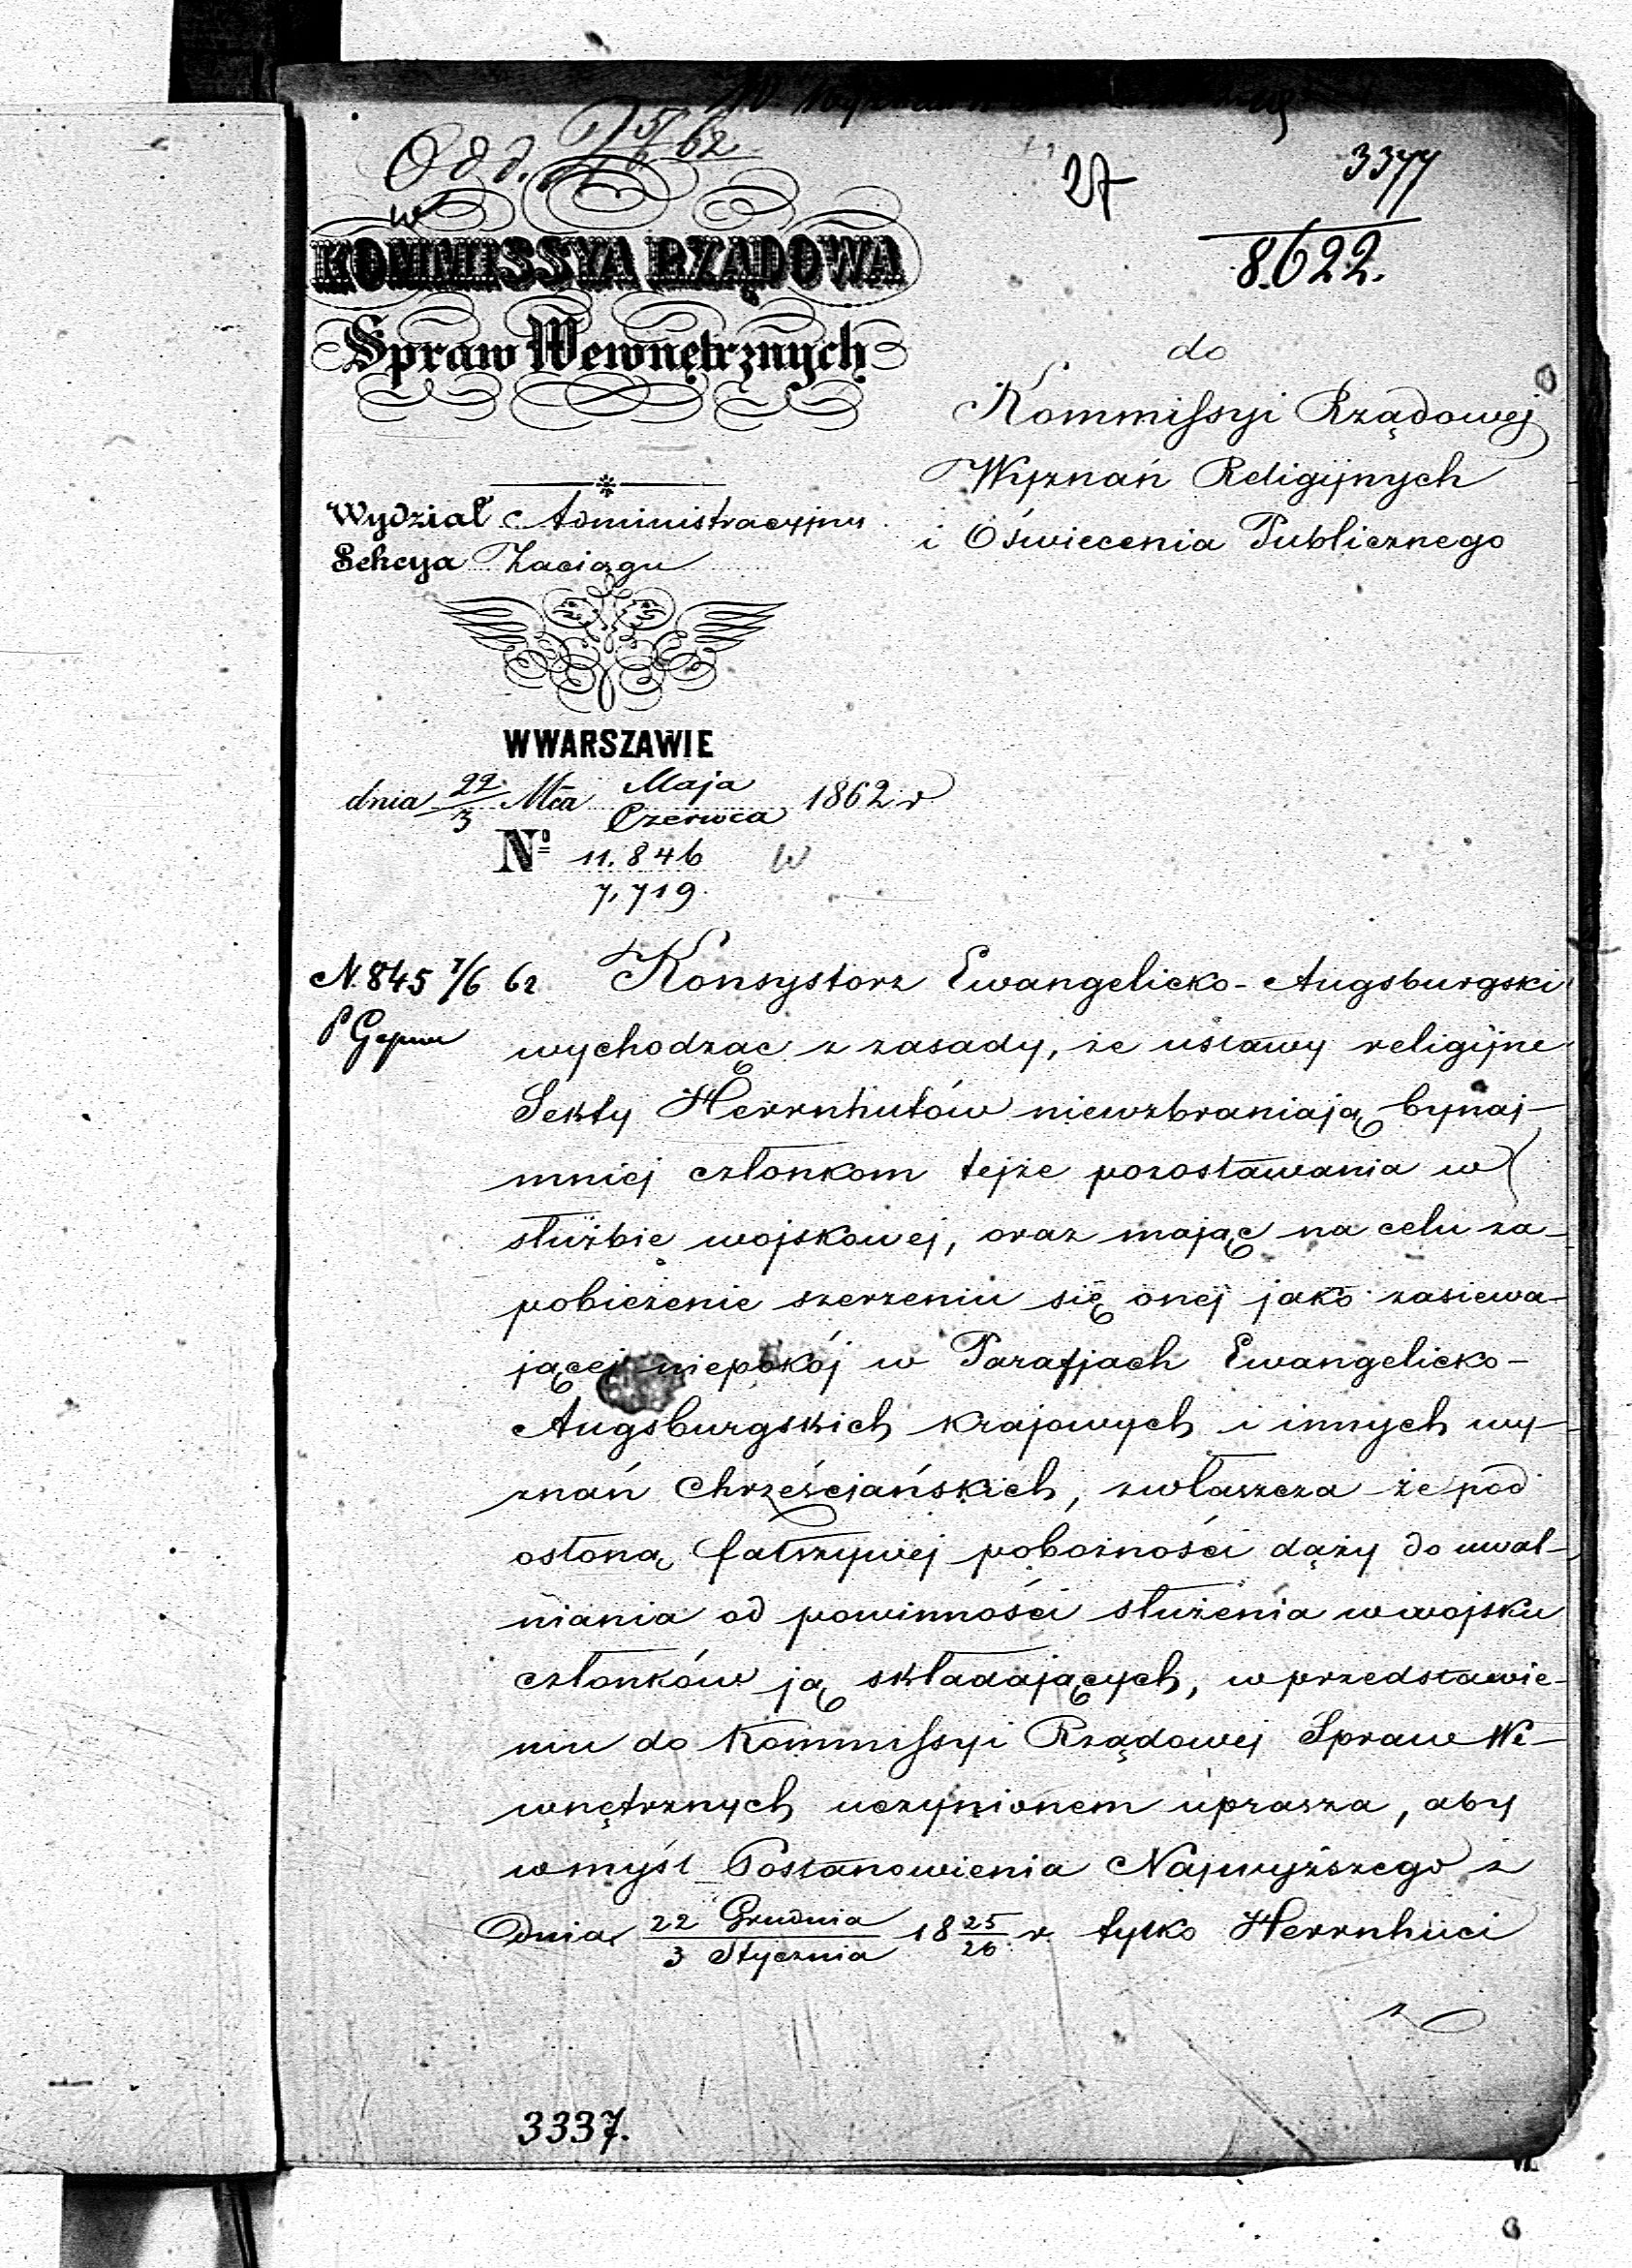 27
3377
8.622.
KOMMISSYA RZĄDOWA
Spraw Wewnętrznych
do
Kommissyi Rządowej
Wyznań Religijnych
i Oświecenia Publicznego
Wydział Administracyjny
Sekcya Zaciągu
W WARSZAWIE
dnia 22/3 Mca Maja/Czerwca 1862 r
Nº 11.846
7,719.
N. 845 7/6 62
Konsystorz Ewangelicko-Augsburgski
wychodząc z zasady, że ustawy religijne
Sekty Herrnhutów niewzbraniają bynaj-
mniej członkom tejże pozostawania w
służbie wojskowej, oraz mając na celu za-
pobieżenie szerzeniu się onej jako zasiewa-
jącej niepokój w Parafjach Ewangelicko-
Augsburgskich krajowych i innych wy-
znań Chrześciańskich, zwłaszcza że pod
osłoną fałszywej pobożności dąży do uwal-
niania od powinności służenia w wojsku
członków ją składających, w przedstawie-
niu do Kommissyi Rządowej Spraw We-
wnętrznych uczynionem uprasza, aby
w myśl Postanowienia Najwyższego z
Dnia 22 Grudnia/3 Stycznia 18 25/26 r. tylko Herrnhuci
z
3337.